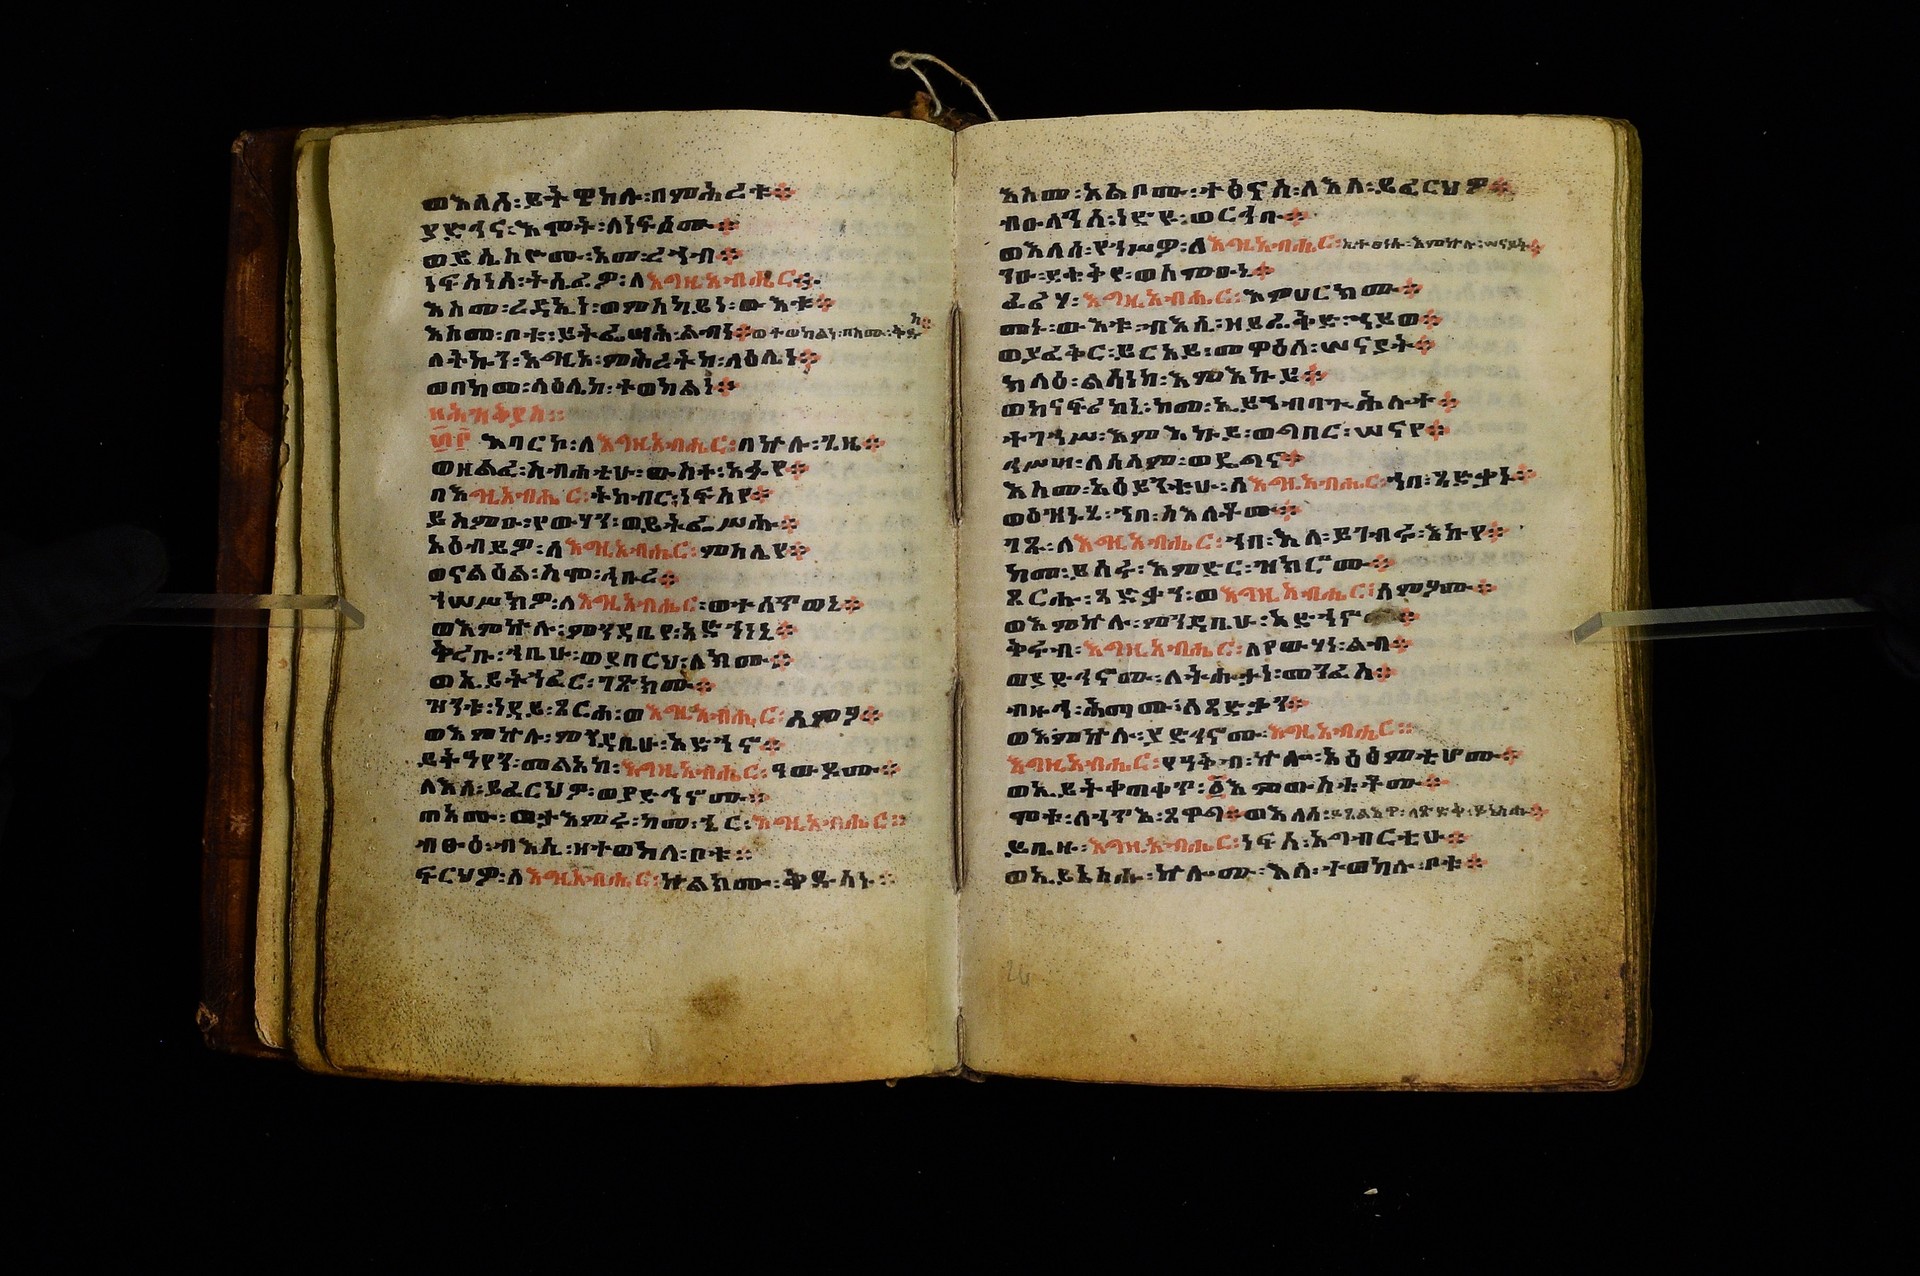 ወእለሰ፡ይትዌከሉ፡በምሕረቱ።
ያድኅና፡እሞት፡ለነፍሶሙ።
ወይሴስዮሙ፡አመ፡ረኃብ።
ነፍስነሰ፡ትሴፈዎ፡ለእግዚአብሔር።
እስመ፡ረዳኢነ፡ወምስካይነ፡ውእቱ።
እስመ፡ቦቱ፡ይትፌሣሕ፡ልብነ።ወተወከልነ፡በስሙ፡ቅዱስ።
ለትኩን፡እግዚኦ፡ምሕረትከ፡ላዕሌነ።
ወበከመ፡ላዕሌከ፡ተወከልነ።
ዘሕዝቅያስ።
፴፫ እባርኮ፡ለእግዚአብሔር፡በኵሉ፡ጊዜ።
ወዘልፈ፡ስብሐቲሁ፡ውስተ፡አፉየ።
በእግዚአብሔር፡ትከብር፡ነፍስየ።
ይስምዑ፡የውሃን፡ወይትፌሥሑ።
አዕብይዎ፡ለእግዚአብሔር፡ምስሌየ።
ወናልዕል፡ስሞ፡ኅቡረ።
ኀሠሥክዎ፡ለእግዚአብሔር፡ወተሰጥወኒ።
ወእምኵሉ፡ምንዳቤየ፡አድኀነኒ።
ቅረቡ፡ኀቤሁ፡ወያበርህ፡ለክሙ።
ወኢይትኀፈር፡ገጽክሙ።
ዝንቱ፡ነዳይ፡ጸርሐ፡ወእግዚአብሔር፡ሰምዖ።
ወእምኵሉ፡ምንዳቤሁ፡አድኀኖ።
ይትዓየን፡መልአከ፡እግዚአብሔር፡ዓውዶሙ።
ለእለ፡ይፈርህዎ፡ወያድኅኖሙ።
ጠዐሙ፡ወታእምሩ፡ከመ፡ኄር፡እግዚአብሔር።
ብፁዕ፡ብእሲ፡ዘተወከለ፡ቦቱ።
ፍርህዎ፡ለእግዚአብሔር፡ኵልክሙ፡ቅዱሳኑ።
እስመ፡አልቦሙ፡ተፅናስ፡ለእለ፡ይፈርህዎ።
ብዑላንሰ፡ነድዩ፡ወርኅቡ።
ወእለሰ፡የኀሥዎ፡ለእግዚአብሔር፡ኢተፀነሱ፡እምኵሉ፡ሠናይት።
ንዑ፡ደቂቅየ፡ወስምዑኒ።
ፈሪሃ፡እግዚአብሔር፡እምህርክሙ።
መኑ፡ውእቱ፡ብእሲ፡ዘይፈቅድ፡ሐይወ።
ወያፈቅር፡ይርአይ፡መዋዕለ፡ሠናያት።
ክላዕ፡ልሳነከ፡እምእኩይ።
ወከናፍሪከኒ፡ከመ፡ኢይንብባ፡ጕሕሉተ።
ተገኀሥ፡እምእኩይ፡ወግበር፡ሠናየ።
ኅሥሣ፡ለሰላም፡ወዴግና።
እስመ፡አዕይንቲሁ፡ለእግዚአብሔር፡ኀበ፡ጻድቃኑ።
ወዕዝኑሂ፡ኀበ፡ስእለቶሙ።
ገጹ፡ለእግዚአብሔር፡ኀበ፡እለ፡ይገብሩ፡እኩየ።
ከመ፡ይሰሩ፡እምድር፡ዝክሮሙ።
ጸርሑ፡ጻድቃን፡ወእግዚአብሔር፡ሰምዖሙ።
ወእምኵሉ፡ምንዳቤሁ፡አድኀኖሙ።
ቅሩብ፡እግዚአብሔር፡ለየውሃነ፡ልብ።
ወያድኅኖሙ፡ለትሑታነ፡መንፈስ።
ብዙኅ፡ሕማሙ፡ለጻድቃን።
ወእምኵሉ፡ያድኅኖሙ፡እግዚአብሔር።
እግዚአብሔር፡የዓቅብ፡ኵሎ፡አዕፅምቲሆሙ።
ወኢይትቀጠቀጥ፡፩እምውስቴቶሙ።
ሞቱ፡ለኃጥእ፡ጸዋግ።
ይቤዙ፡እግዚአብሔር፡ነፍሰ፡አግብርቲሁ።
ወኢይኔስሑ፡ኵሎሙ፡እለ፡ተወከሉ፡ቦቱ።
26